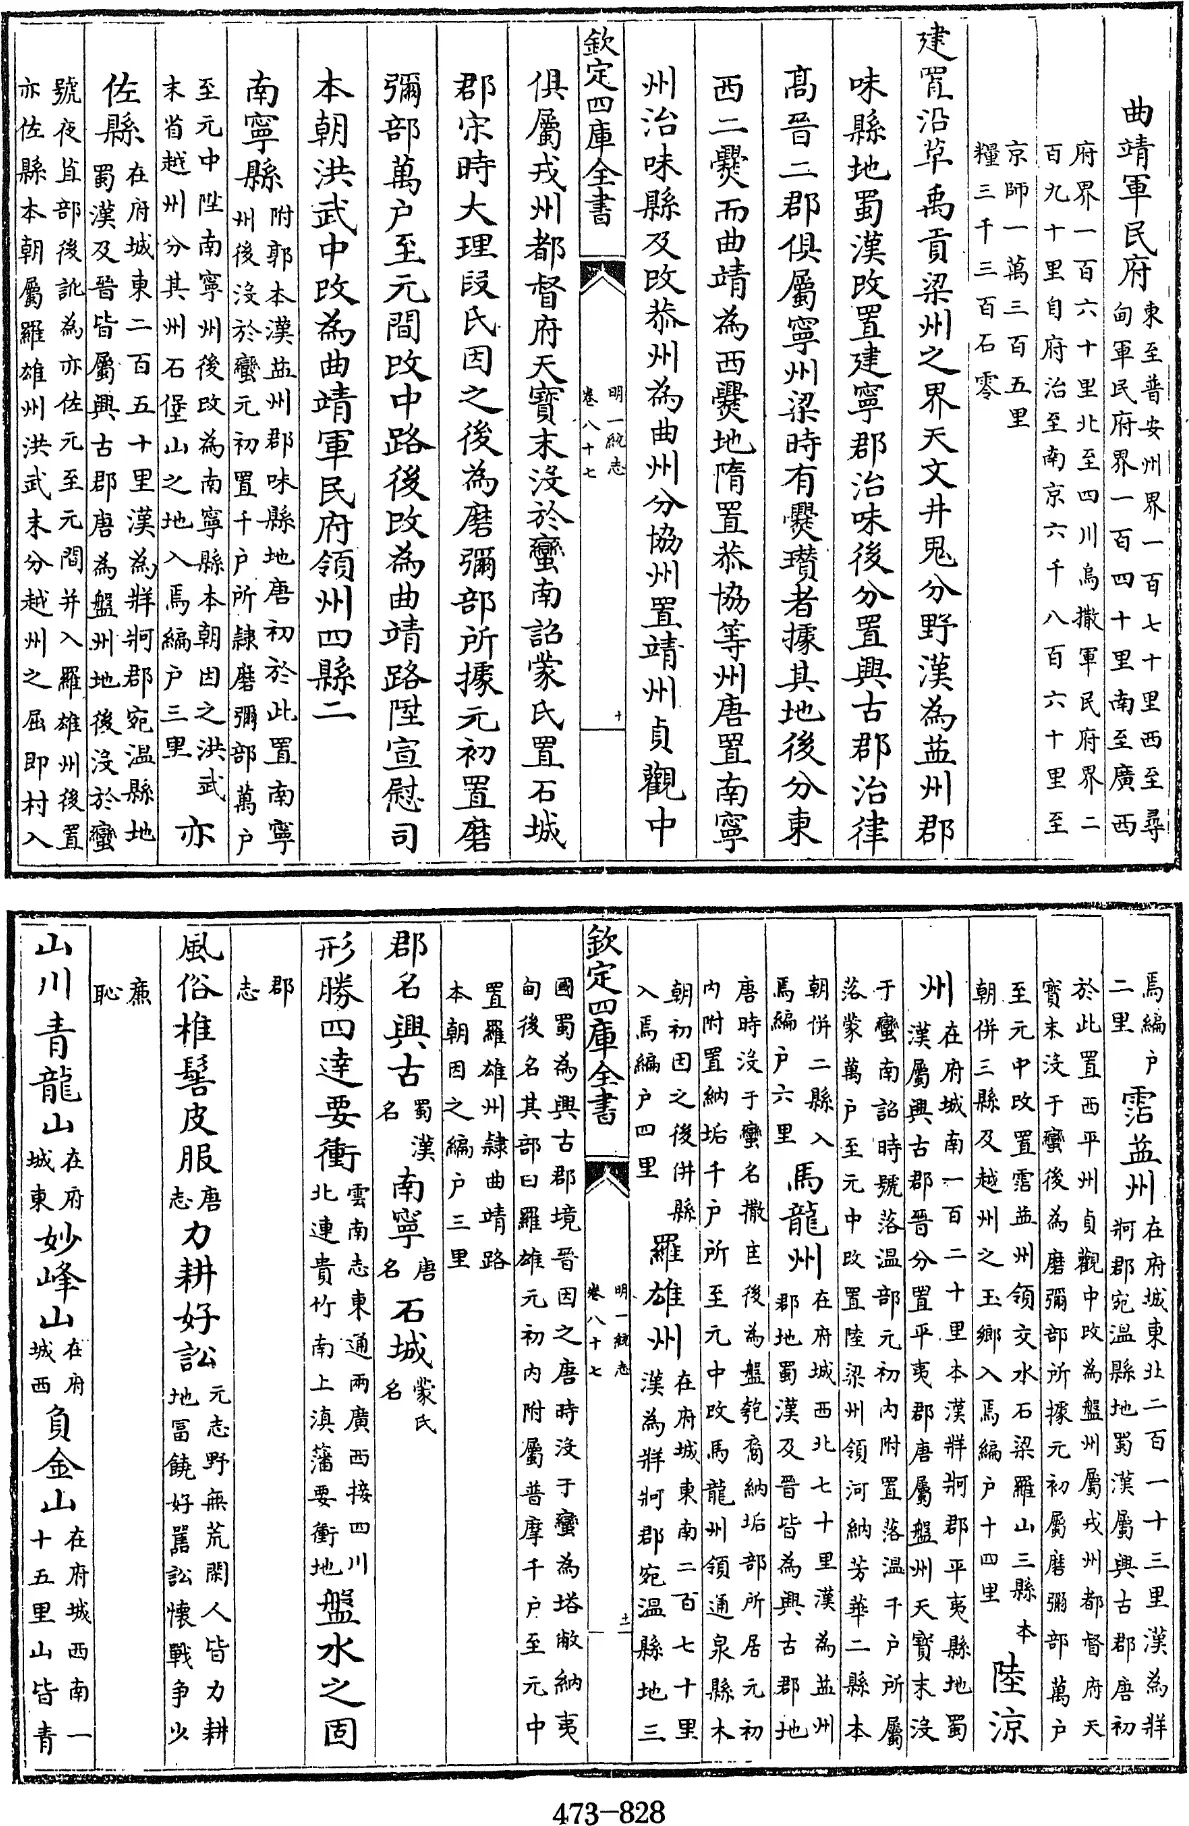 曲靖軍民府東至普安州界一百七十里西至尋甸軍民府界一百四十里南至廣西
府界一百六十里北至四川烏撒軍民府界二百九十里自府治至南京六千八百六十里至
京師一萬三百五里糧三千三百石零
建置沿革禹貢梁州之界天文井鬼分野漢為益州郡
味縣地蜀漢改置建寧郡治味後分置興古郡治律
髙晉二郡俱屬寧州梁時有爨瓚者據其地後分東
西二爨而曲靖為西爨地隋置恭協等州唐置南寧
州治味縣及改恭州為曲州分協州置靖州貞觀中
欽定四庫全書
明一統志
卷八十七
十
俱屬戎州都督府天寶末沒於蠻南詔蒙氏置石城
郡宋時大理段氏因之後為磨彌部所據元初置磨
彌部萬户至元間改中路後改為曲靖路陞宣慰司
本朝洪武中改為曲靖軍民府領州四縣二
南寧縣附郭本漢益州郡味縣地唐初於此置南寧州後沒於蠻元初置千户所隸磨彌部萬户
至元中陞南寧州後改為南寧縣本朝因之洪武末省越州分其州石堡山之地入焉編户三里亦
佐縣在府城東二百五十里漢為牂牁郡宛温縣地蜀漢及晉皆屬興古郡唐為盤州地後沒於蠻
號夜苴部後訛為亦佐元至元間并入羅雄州後置亦佐縣本朝屬羅雄州洪武末分越州之屈即村入
焉編户二里霑益州在府城東北二百一十三里漢為牂牁郡宛温縣地蜀漢屬興古郡唐初
於此置西平州貞觀中改為盤州屬戎州都督府天寶末沒于蠻後為磨彌部所據元初屬磨彌部萬户
至元中改置霑益州領交水石梁羅山三縣本朝併三縣及越州之玉鄉入焉編户十四里陸涼
州在府城南一百二十里本漢牂牁郡平夷縣地蜀漢屬興古郡晉分置平夷郡唐屬盤州天寶末沒
于蠻南詔時號落温部元初内附置落温千户所屬落蒙萬户至元中改置陸梁州領河納芳華二縣本
朝併二縣入焉編户六里馬龍州在府城西北七十里漢為益州郡地蜀漢及晉皆為興古郡地
唐時沒于蠻名撒匡後為盤瓠裔納垢部所居元初内附置納垢千户所至元中改馬龍州領通泉縣本
朝初因之後併縣入焉編户四里羅雄州在府城東南二百七十里漢為牂牁郡宛温縣地三
欽定四庫全書
明一統志
卷八十七
十一
國蜀為興古郡境晉因之唐時沒于蠻為塔敝納夷甸後名其部曰羅雄元初内附屬普摩千户至元中
置羅雄州隸曲靖路本朝因之編户三里
郡名興古蜀漢名南寧唐名石城蒙氏名
形勝四達要衝雲南志東通兩廣西接四川北連貴竹南上滇藩要衝地盤水之固
郡志
風俗椎髻皮服唐志力耕好訟元志野無荒閑人皆力耕地富饒好罵訟懷戰爭少
亷恥
山川青龍山在府城東妙峰山在府城西負金山在府城西南一十五里山皆青
473-828